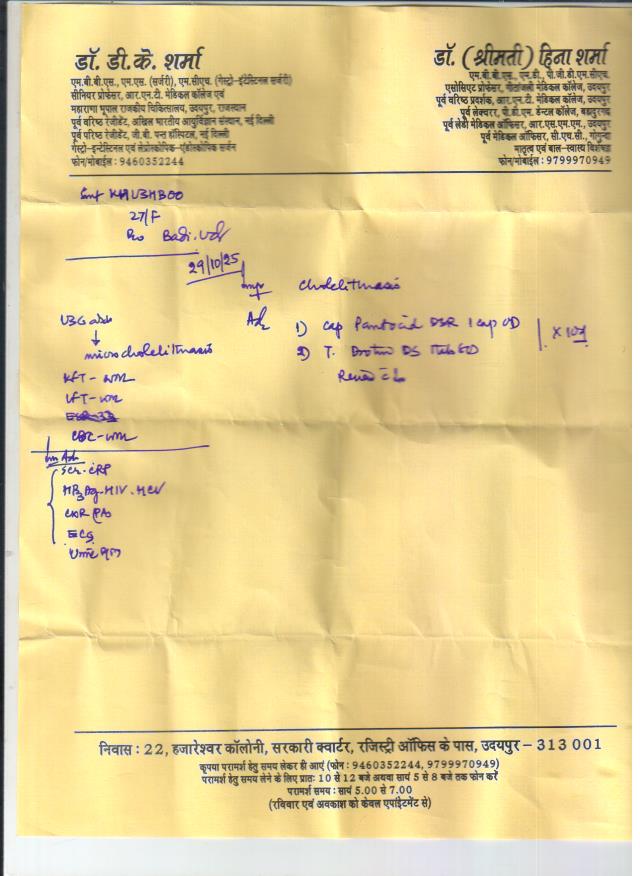 डॉ. डी.के. शर्मा
एम.बी.बी.एस., एम.एस. (सर्जरी), एम.सीएच. (गेस्ट्रो-इंटेस्टिनल सर्जरी)
सीनियर प्रोफेसर, आर.एन.टी. मेडिकल कॉलेज एवं
महाराणा भूपाल राजकीय चिकित्सालय, उदयपुर, राजस्थान
पूर्व वरिष्ठ रेजीडेंट, अखिल भारतीय आयुर्विज्ञान संस्थान, नई दिल्ली
पूर्व वरिष्ठ रेजीडेंट, जी.बी. पन्त हॉस्पिटल, नई दिल्ली
गेस्ट्रो-इन्टेस्टिनल एवं लेप्रोस्कोपिक-एंडोस्कोपिक सर्जन
फोन/मोबाईल : 9460352244
डॉ. (श्रीमती) हिना शर्मा
एम.बी.बी.एस., एम.डी., पी.जी.डी.एम.सीएच.
एसोसिएट प्रोफेसर, गीतांजली मेडिकल कॉलेज, उदयपुर
पूर्व वरिष्ठ प्रदर्शक, आर.एन.टी. मेडिकल कॉलेज, उदयपुर
पूर्व लेक्चरर, पी.डी.एम. डेन्टल कॉलेज, बहादुरगढ़
पूर्व लेडी मेडिकल ऑफिसर, आर.एस.एम.एम., उदयपुर
पूर्व मेडिकल ऑफिसर, सी.एच.सी., गोगुन्दा
मातृत्व एवं बाल-स्वास्थ्य विशेषज्ञ
फोन/मोबाईल : 9799970949
Smt KHUSHBOO
27/F
R/o Badi. Udr
29/10/25
Imp
Cholelithiasis
USG abd
microcholelithiasis
KFT - WNL
LFT - WNL
CBC - WNL
Adv
1) Cap Pantocid DSR 1 cap OD
2) T. DS 1 tab
Review
Inv Adv
Scr. CRP
HBsAg. HIV. HCV
CXR (PA)
ECG
Urine
निवास : 22, हजारेश्वर कॉलोनी, सरकारी क्वार्टर, रजिस्ट्री ऑफिस के पास, उदयपुर – 313 001
कृपया परामर्श हेतु समय लेकर ही आएं (फोन : 9460352244, 9799970949)
परामर्श हेतु समय लेने के लिए प्रातः 10 से 12 बजे अथवा सायं 5 से 8 बजे तक फोन करें
परामर्श समय : सायं 5.00 से 7.00
(रविवार एवं अवकाश को केवल एपॉइंटमेंट से)